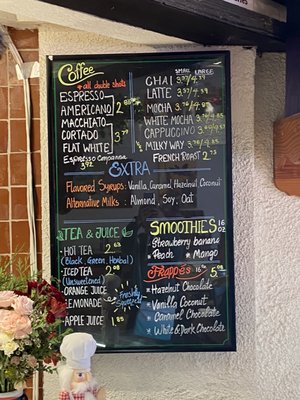 Coffee
* all double shots
ESPRESSO
AMERICANO
MACCHIATO
CORTADO
FLAT WHITE
Espresso Campanna
SMALL LARGE
CHAI
LATTE
MOCHA
WHITE MOCHA
CAPPUCCINO
MILKY WAY
FRENCH ROAST 2.73
EXTRA
Flavored Syrups: Vanilla, Caramel, Hazelnut, Coconut
Alternative Milks: Almond, Soy, Oat
TEA & JUICE
HOT TEA 2.63
(Black, Green, Herbal)
ICED TEA 2.08
(Unsweetened)
ORANGE JUICE
LEMONADE
Freshly Squeezed
APPLE JUICE 1.85
SMOOTHIES 16 oz
* Strawberry banana
* Peach * Mango
Frappes 16 oz
* Hazelnut Chocolate
* Vanilla Coconut
* Caramel Chocolate
* White & Dark Chocolate